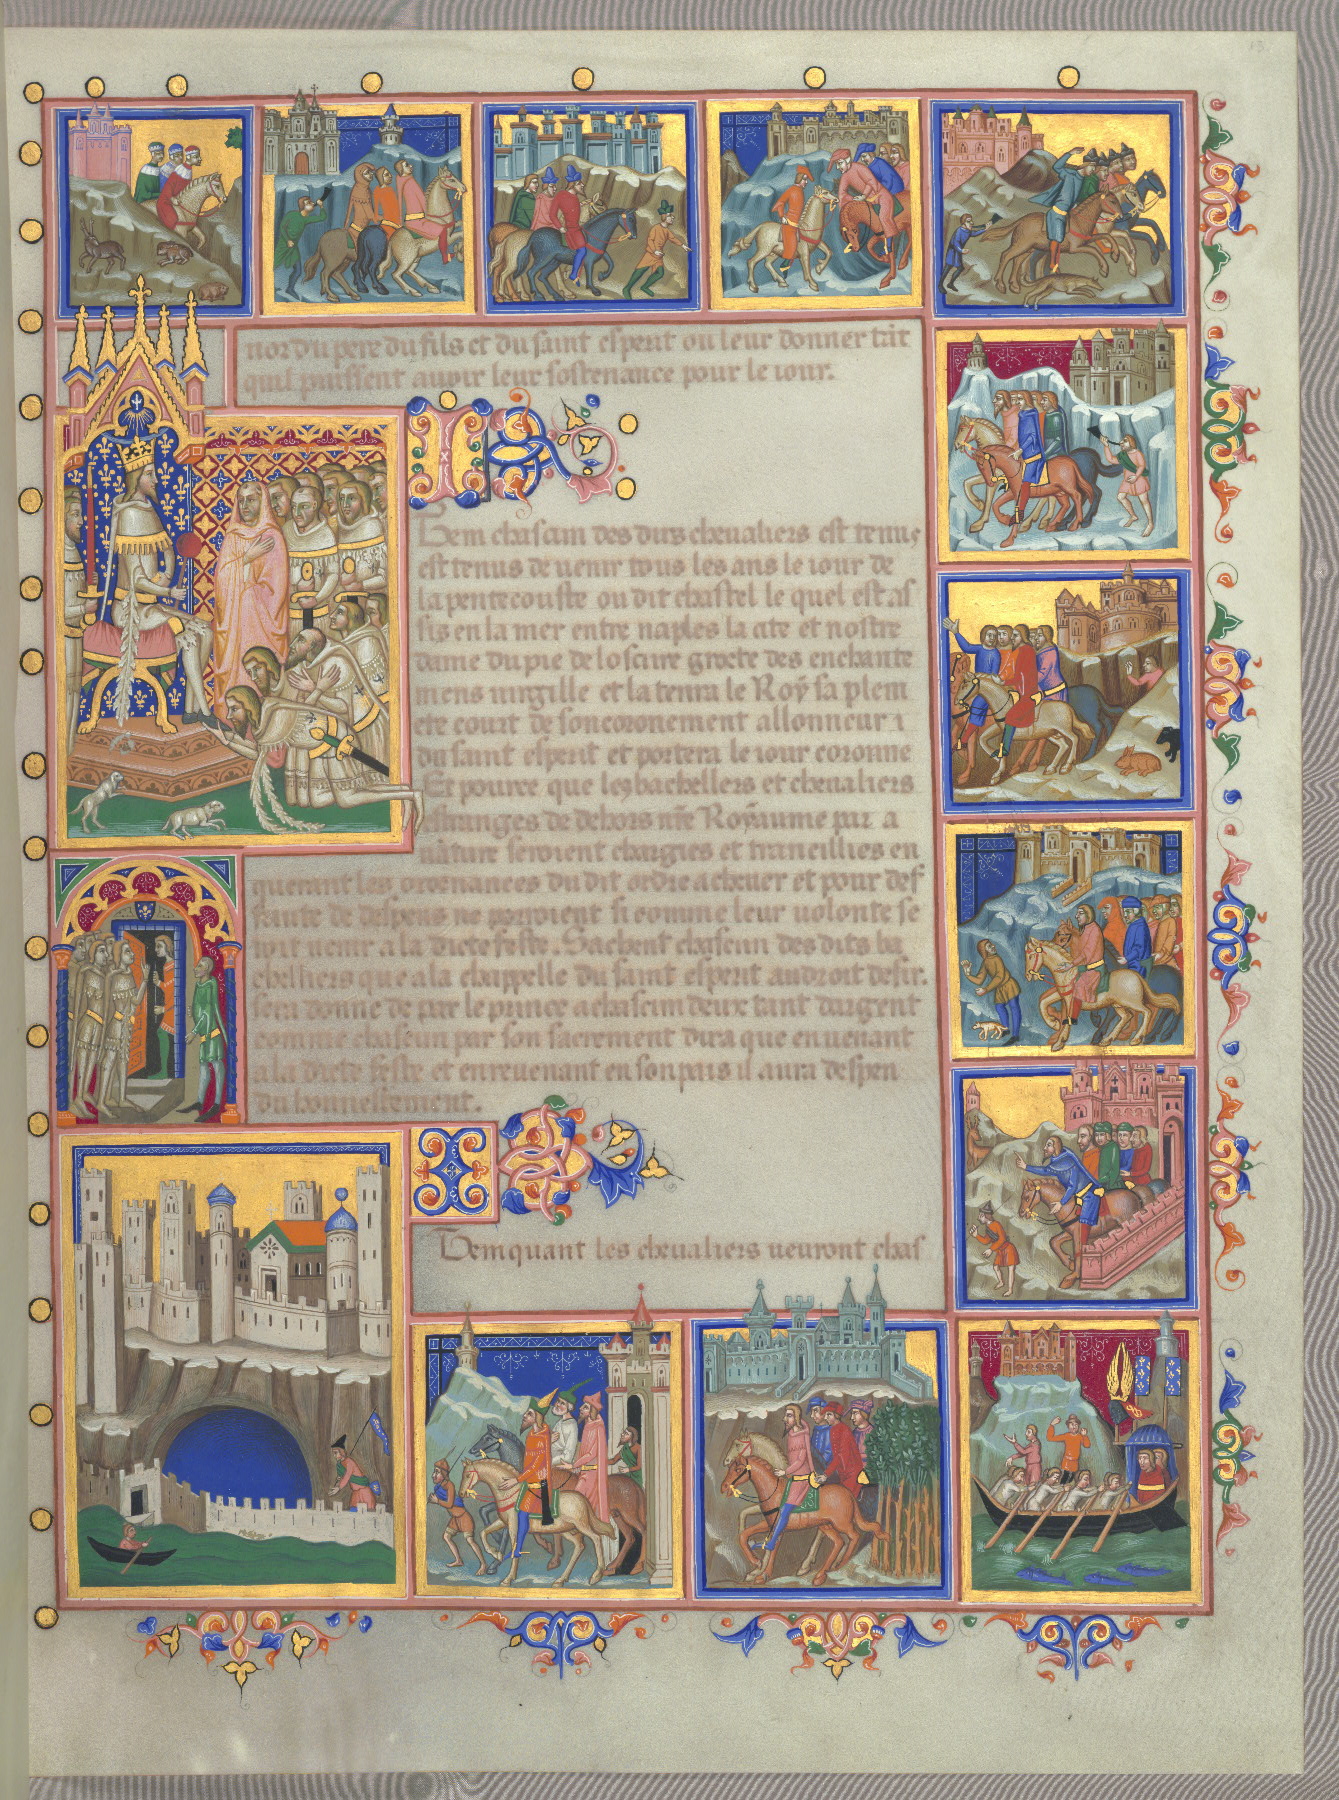 nor du pere du fils et du saint esperit ou leur donner tãt
quil puissent auoir leur sostenance pour le iour.
Item chascun des dits cheualiers est tenus
est tenus de uenir tous les ans le iour de
la pentecouste ou dit chastel le quel est as
sis en la mer entre naples la cite et nostre
dame du pie de loscure grocte des enchante
mens uirgille et la tenra le Roy sa plem
ere court de son coronement allonneur
du saint esperit et portera le iour coronne
Et pource que les bachellers et cheualiers
estranges de dehors nr̃e Royaume par a
uature seroient chargies et traueillies en
querant les ordenances du dit ordre acheuer et pour def
faute de despens ne peroient si comme leur uolonte se
roit uenir a la dicte feste. Sachent chascun des dits ba
chelliers que a la chappelle du saint esperit
sera donne de par le prince a chascun deux tant dargent
comme chascun par son sacrement dira que en uenant
a la dicte feste et en reuenant en son pais il aura despen
du honnestement.
Item quant les cheualiers uenront chas